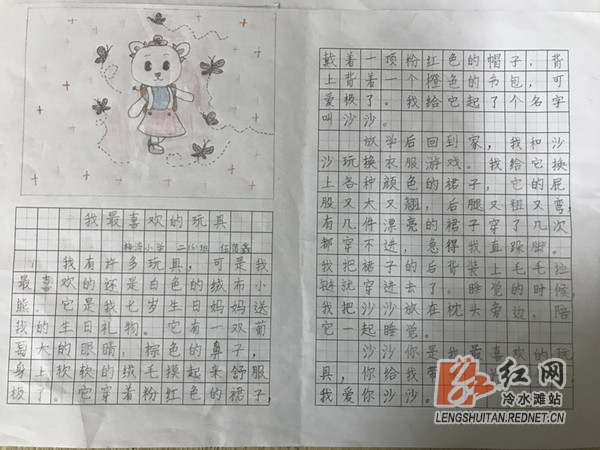 我最喜欢的玩具
梅湾小学 二16班
我有许多玩具，可是我
最喜欢的还是白色的绒布小
熊。它是我七岁生日妈妈送
我的生日礼物。它有一双葡
萄大的眼睛，棕色的鼻子，
身上软软的绒毛摸起来舒服
极了。它穿着粉红色的裙子，
戴着一顶粉红色的帽子，背
上背着一个橙色的书包，可
爱极了。我给它起了个名字
叫沙沙。
放学后回到家，我和沙
沙玩换衣服游戏。我给它换
上各种颜色的裙子，它的屁
股又大又翘，后腿又粗又弯，
有几件漂亮的裙子穿了几次
都穿不进，急得我直跺脚。
我把裙子的后背装上毛毛拉
链就穿进去了。睡觉的时候，
我把沙沙放在枕头旁边，陪
它一起睡觉。
沙沙你是我最喜欢的玩
具，你给我带
我爱你沙沙。
红网
冷水滩站
LENGSHUITAN.REDNET.CN